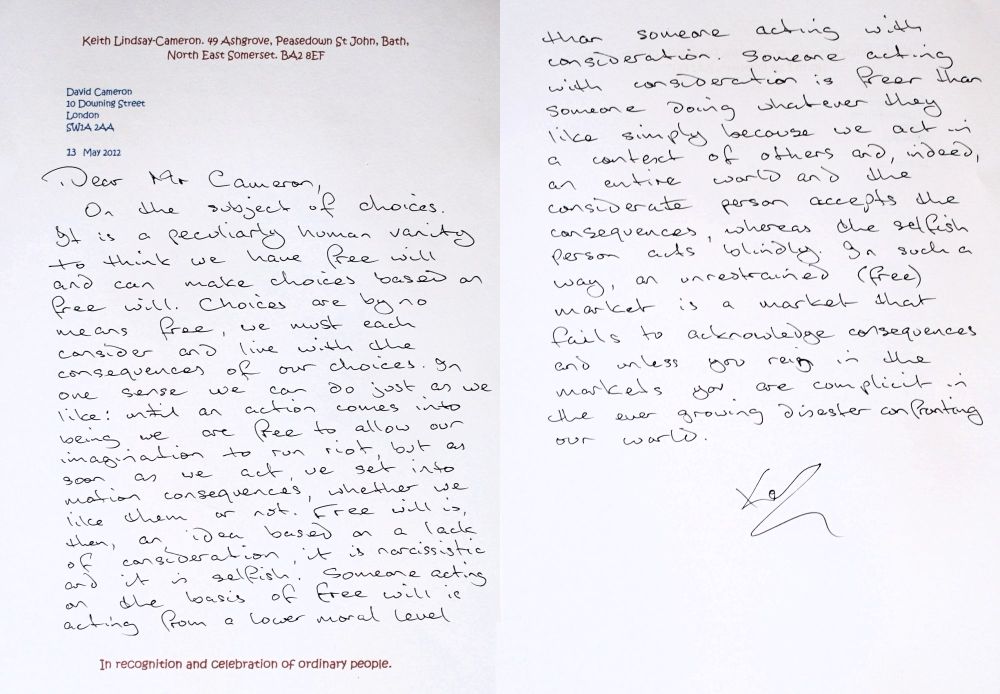 Keith Lindsay-Cameron. 49 Ashgrove, Peasedown St John, Bath,
North East Somerset. BA2 8EF
David Cameron
10 Downing Street
London
SW1A 2AA
13 May 2012
Dear Mr Cameron,
On the subject of choices.
It is a peculiarly human vanity
to think we have free will
and can make choices based on
free will. Choices are by no
means free, we must each
consider and live with the
consequences of our choices. In
one sense we can do just as we
like: until an action comes into
being we are free to allow our
imagination to run riot, but as
soon as we act, we set into
motion consequences, whether we
like them or not. Free will is,
then, an idea based on a lack
of consideration, it is narcissistic
and it is selfish. Someone acting
on the basis of free will is
acting from a lower moral level
In recognition and celebration of ordinary people.
than someone acting with
consideration. Someone acting
with consideration is freer than
someone doing whatever they
like simply because we act in
a context of others and, indeed,
an entire world and the
considerate person accepts the
consequences, whereas the selfish
person acts blindly. In such a
way, an unrestrained (free)
market is a market that
fails to acknowledge consequences
and unless you reign in the
markets you are complicit in
the ever growing disaster confronting
our world.